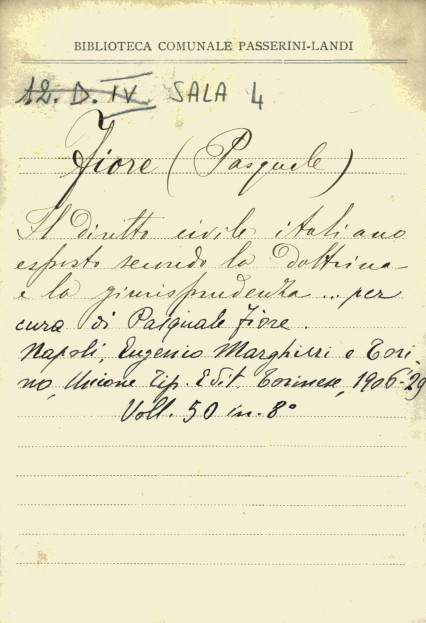 BIBLIOTECA COMUNALE PASSERINI-LANDI
12. D. IV. SALA 4
Fiore (Pasquale)
Il diritto civile italiano
esposto secondo la dottrina
e la giurisprudenza ... per
cura di Pasquale Fiore.
Napoli, Eugenio Marghieri e Tori-
no, Unione Tip. Edit. Torinese, 1906-29
Voll. 50 in-8°